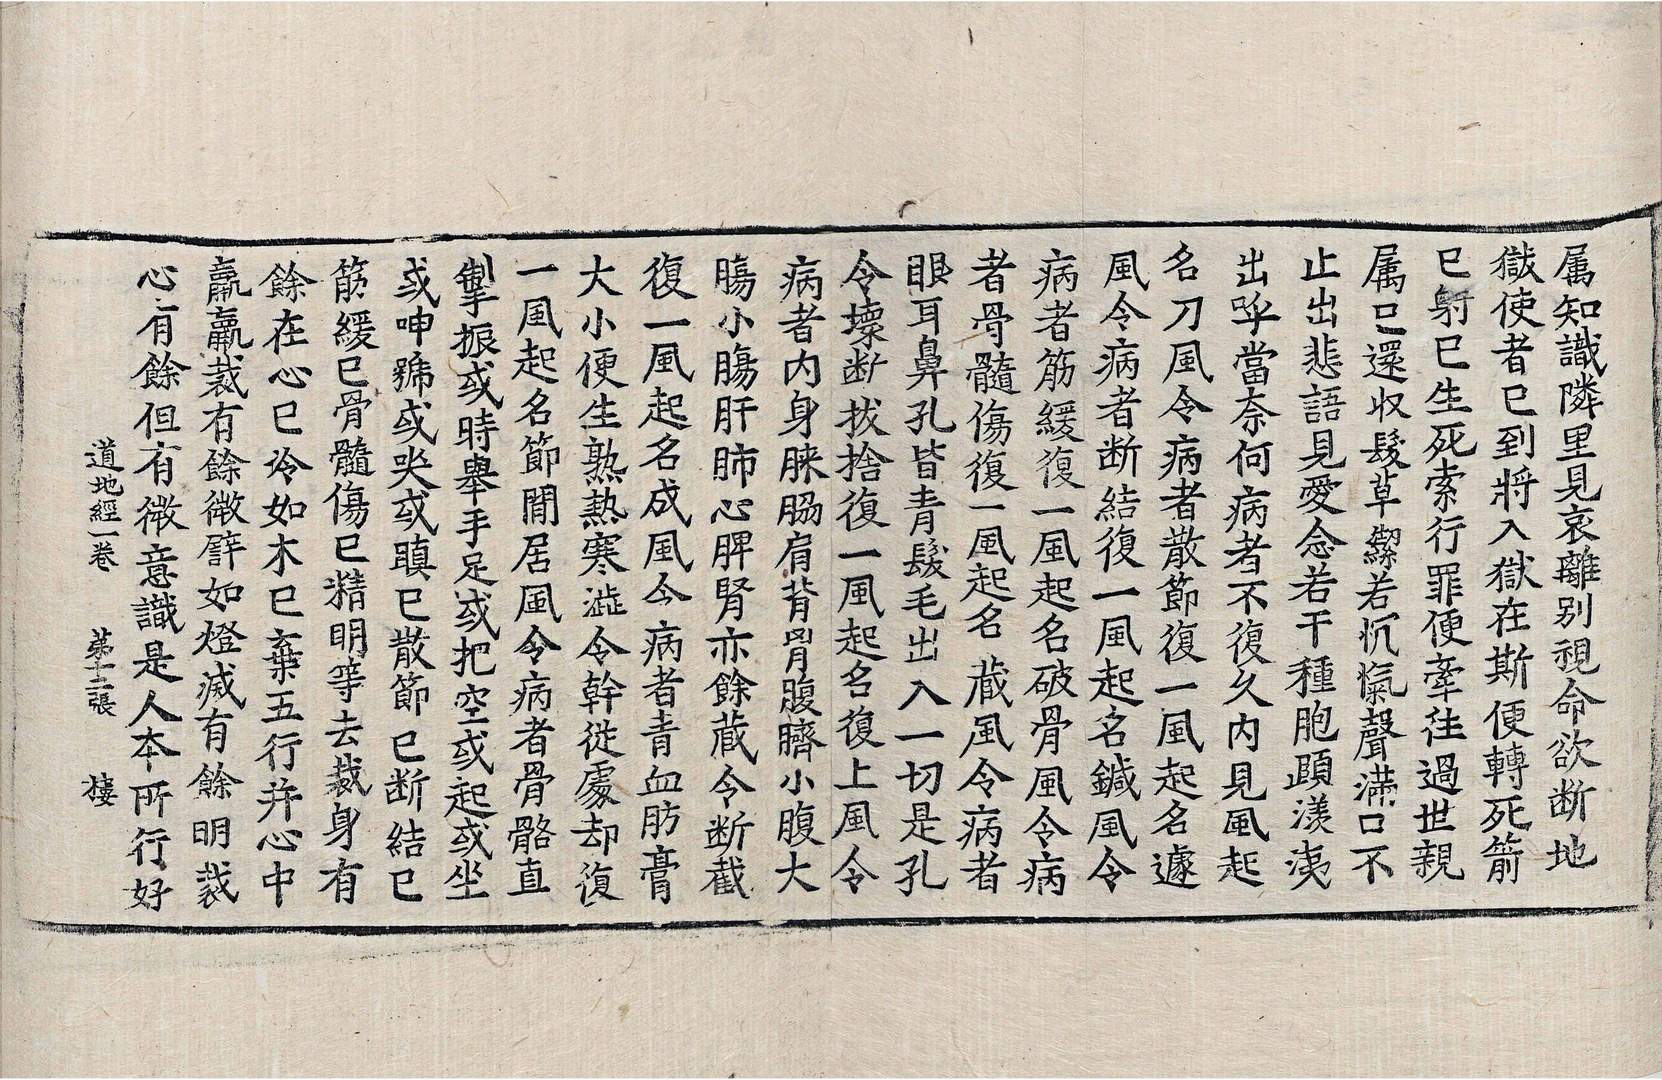 属知識隣里見哀離別視命欲断地
獄使者已到將入獄在斯便轉死箭
已射已生死索行罪便牽往過世親
属已還收髮草繫若沉愾聲滿口不
止出悲語見愛念若干種胞頤漾洟
出呼當奈何病者不復久内見風起
名刀風令病者散節復一風起名遽
風令病者断結復一風起名鍼風令
病者筋緩復一風起名破骨風令病
者骨髓傷復一風起名藏風令病者
眼耳鼻孔皆青髮毛出入一切是孔
令壞断拔捨復一風起名復上風令
病者内身脒脇肩背胷腹臍小腹大
腸小腸肝肺心脾腎亦餘藏令断截
復一風起名成風令病者青血肪膏
大小便生熟熱寒澁令幹從處却復
一風起名節間居風令病者骨骼直
掣振或時舉手足或把空或起或坐
或呻號或哭或瞋已散節已断結已
筋緩已骨髓傷已精明等去裁身有
餘在心已冷如木已棄五行并心中
羸羸裁有餘微譬如燈滅有餘明裁
心有餘但有微意識是人本所行好
道地經一卷 第十二張 樓